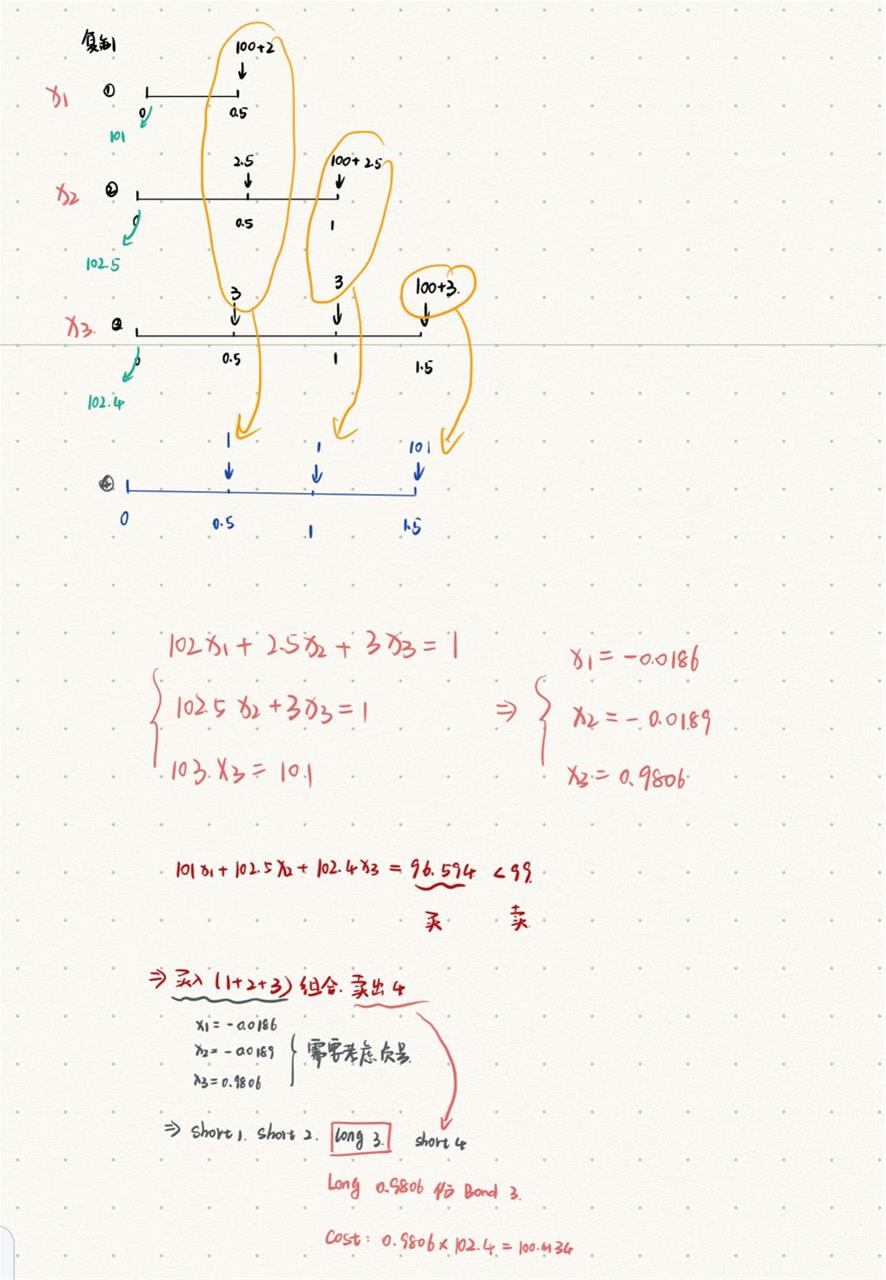 复制
100+2
x1 ① 0 0.5
101
2.5 100+2.5
x2 ② 0 0.5 1
102.5
3 3 100+3.
x3. ③ 0 0.5 1 1.5
102.4
1 1 101
④ 0 0.5 1 1.5
102x1 + 2.5x2 + 3x3 = 1
102.5 x2 + 3x3 = 1
103. x3 = 101
⇒
x1 = -0.0186
x2 = -0.0189
x3 = 0.9806
101x1 + 102.5x2 + 102.4x3 = 96.594 < 99.
买 卖
⇒ 买入 (1+2+3) 组合. 卖出 4
x1 = -0.0186
x2 = -0.0189
x3 = 0.9806
需要考虑负号
⇒ short 1. short 2. Long 3. short 4
Long 0.9806 份 Bond 3.
Cost: 0.9806 × 102.4 = 100.4134